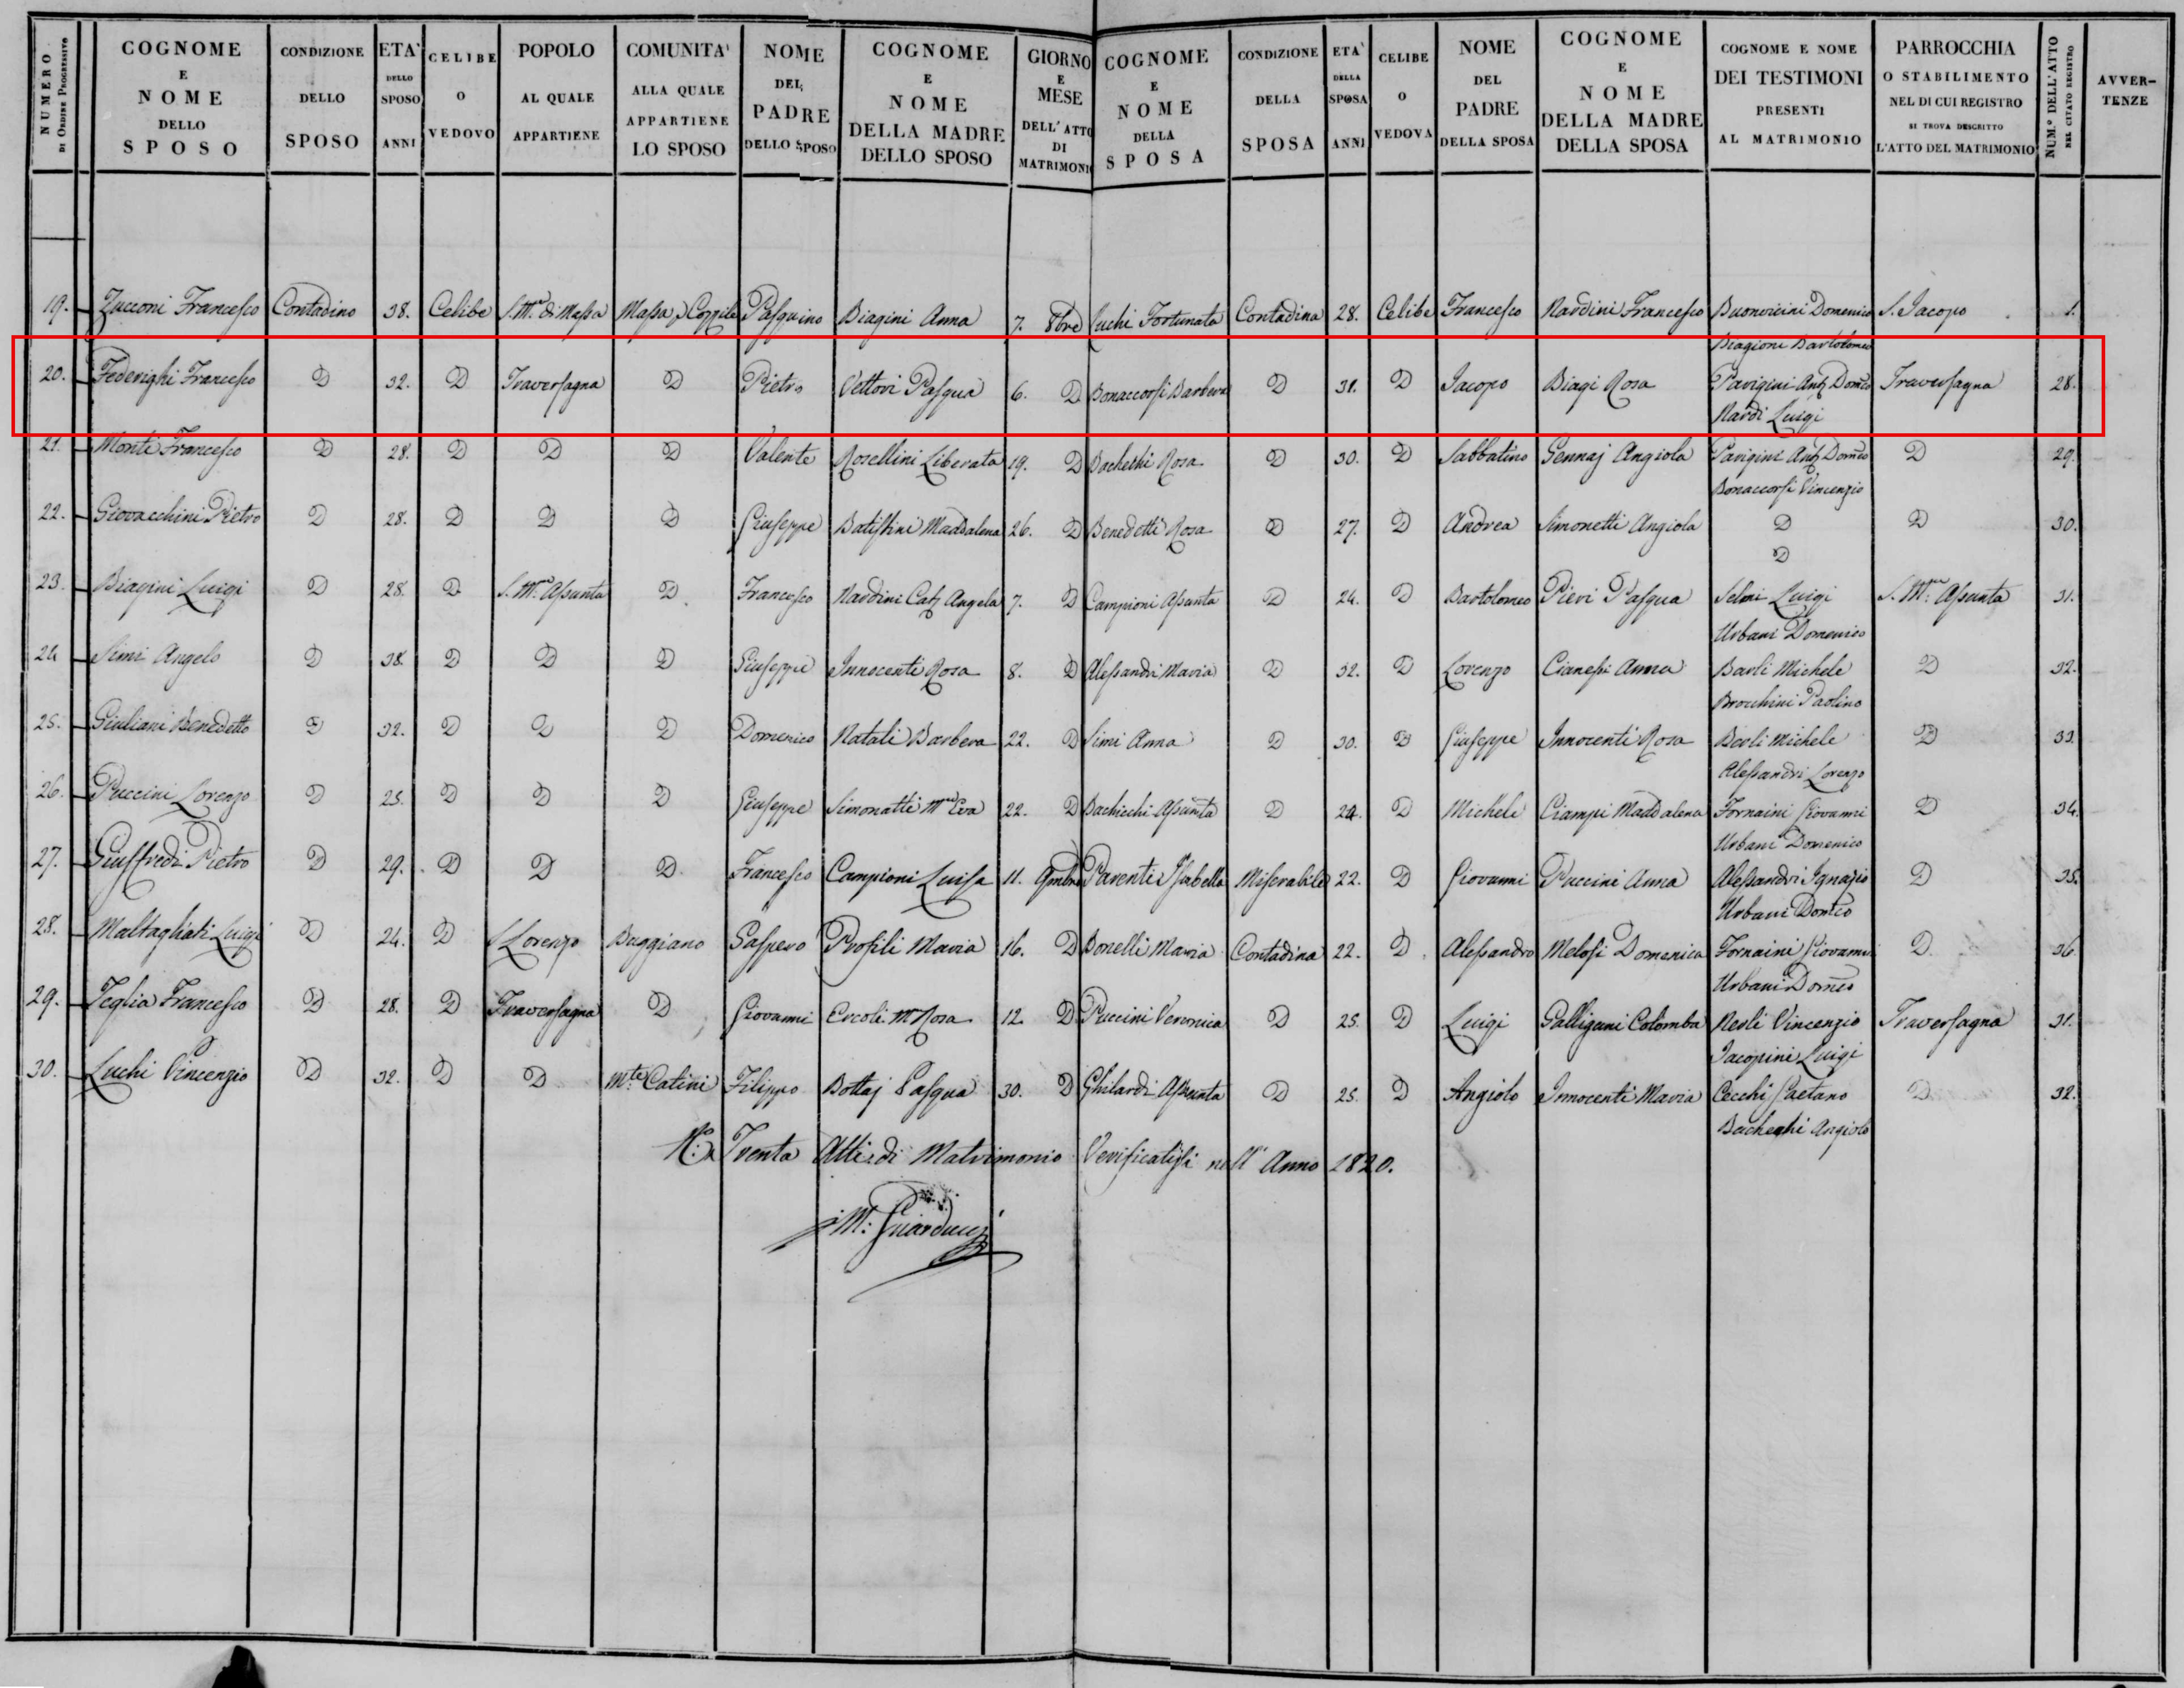 NUMERO DI ORDINE PROGRESSIVO
COGNOME E NOME DELLO SPOSO
CONDIZIONE DELLO SPOSO
ETA' DELLO SPOSO ANNI
CELIBE O VEDOVO
POPOLO AL QUALE APPARTIENE
COMUNITA' ALLA QUALE APPARTIENE LO SPOSO
NOME DEL PADRE DELLO SPOSO
COGNOME E NOME DELLA MADRE DELLO SPOSO
GIORNO E MESE DELL'ATTO DI MATRIMONIO
COGNOME E NOME DELLA SPOSA
CONDIZIONE DELLA SPOSA
ETA' DELLA SPOSA ANNI
CELIBE O VEDOVA
NOME DEL PADRE DELLA SPOSA
COGNOME E NOME DELLA MADRE DELLA SPOSA
COGNOME E NOME DEI TESTIMONI PRESENTI AL MATRIMONIO
PARROCCHIA O STABILIMENTO NEL DI CUI REGISTRO SI TROVA DESCRITTO L'ATTO DEL MATRIMONIO
NUM.º DELL'ATTO NEL CITATO REGISTRO
AVVERTENZE
19. Zucconi Francesco Contadino 38. Celibe S. M.ª di Massa Massa, Cozzile Pasquino Biagini Anna 7. 8bre Luchi Fortunata Contadina 28. Celibe Francesco Nardini Francesco Buonvicini Domenico S. Jacopo 1.
Biagioni Bartolomeo
20. Federighi Francesco D 32. D Traversagna D Pietro Vettori Pasqua 6. D Bonaccorsi Barbera D 31. D Jacopo Biagi Rosa Parigini Ant.º Dom.co Traversagna 28.
Nardi Luigi
21. Monti Francesco D 28. D D D Valente Rosellini Liberata 19. D Bachechi Rosa D 30. D Sabbatino Gennaj Angiola Parigini Ant.º Dom.co D 29.
Bonaccorsi Vincenzio
22. Giovacchini Pietro D 28. D D D Giuseppe Batistini Maddalena 26. D Benedetti Rosa D 27. D Andrea Simonetti Angiola D D 30.
D
23. Biagini Luigi D 28. D S. M.ª Assunta D Francesco Nardini Cat.ª Angela 7. D Campioni Assunta D 24. D Bartolomeo Pievi Pasqua Selmi Luigi S. M.ª Assunta 31.
Urbani Domenico
24 Simi Angelo D 38. D D D Giuseppe Innocenti Rosa 8. D Alessandri Maria D 32. D Lorenzo Cianesi Anna Barli Michele D 32.
Brocchini Paolino
25. Giuliani Benedetto D 32. D D D Domenico Natali Barbera 22. D Simi Anna D 30. D Giuseppe Innocenti Rosa Berli Michele D 33.
Alessandri Lorenzo
26. Puccini Lorenzo D 25. D D D Giuseppe Simonatti M.ª Eva 22. D Bachicchi Assunta D 24. D Michele Ciampi Maddalena Fornaini Giovanni D 34.
Urbani Domenico
27. Giuffredi Pietro D 29. D D D Francesco Campioni Luisa 11. 9mbre Parenti Isabella Miserabile 22. D Giovanni Puccini Anna Alessandri Ignazio D 35.
Urbani Dom.co
28. Maltagliati Luigi D 24. D S Lorenzo Buggiano Gaspero Profili Maria 16. D Bonelli Maria Contadina 22. D Alessandro Melosi Domenica Fornaini Giovanni D 36
Urbani Dom.co
29. Teglia Francesco D 28. D Traversagna D Giovanni Ercoli M.ª Rosa 12. D Puccini Veronica D 25. D Luigi Galligani Colomba Nerli Vincenzio Traversagna 31.
Jacopini Luigi
30. Luchi Vincenzio D 32. D D M.te Catini Filippo Bottaj Pasqua 30. D Ghilardi Assunta D 25. D Angiolo Innocenti Maria Cecchi Gaetano D 32.
Bachechi Angiolo
N.º Trenta Atti di Matrimonio Verificatisi nell' Anno 1820.
M. Guarducci